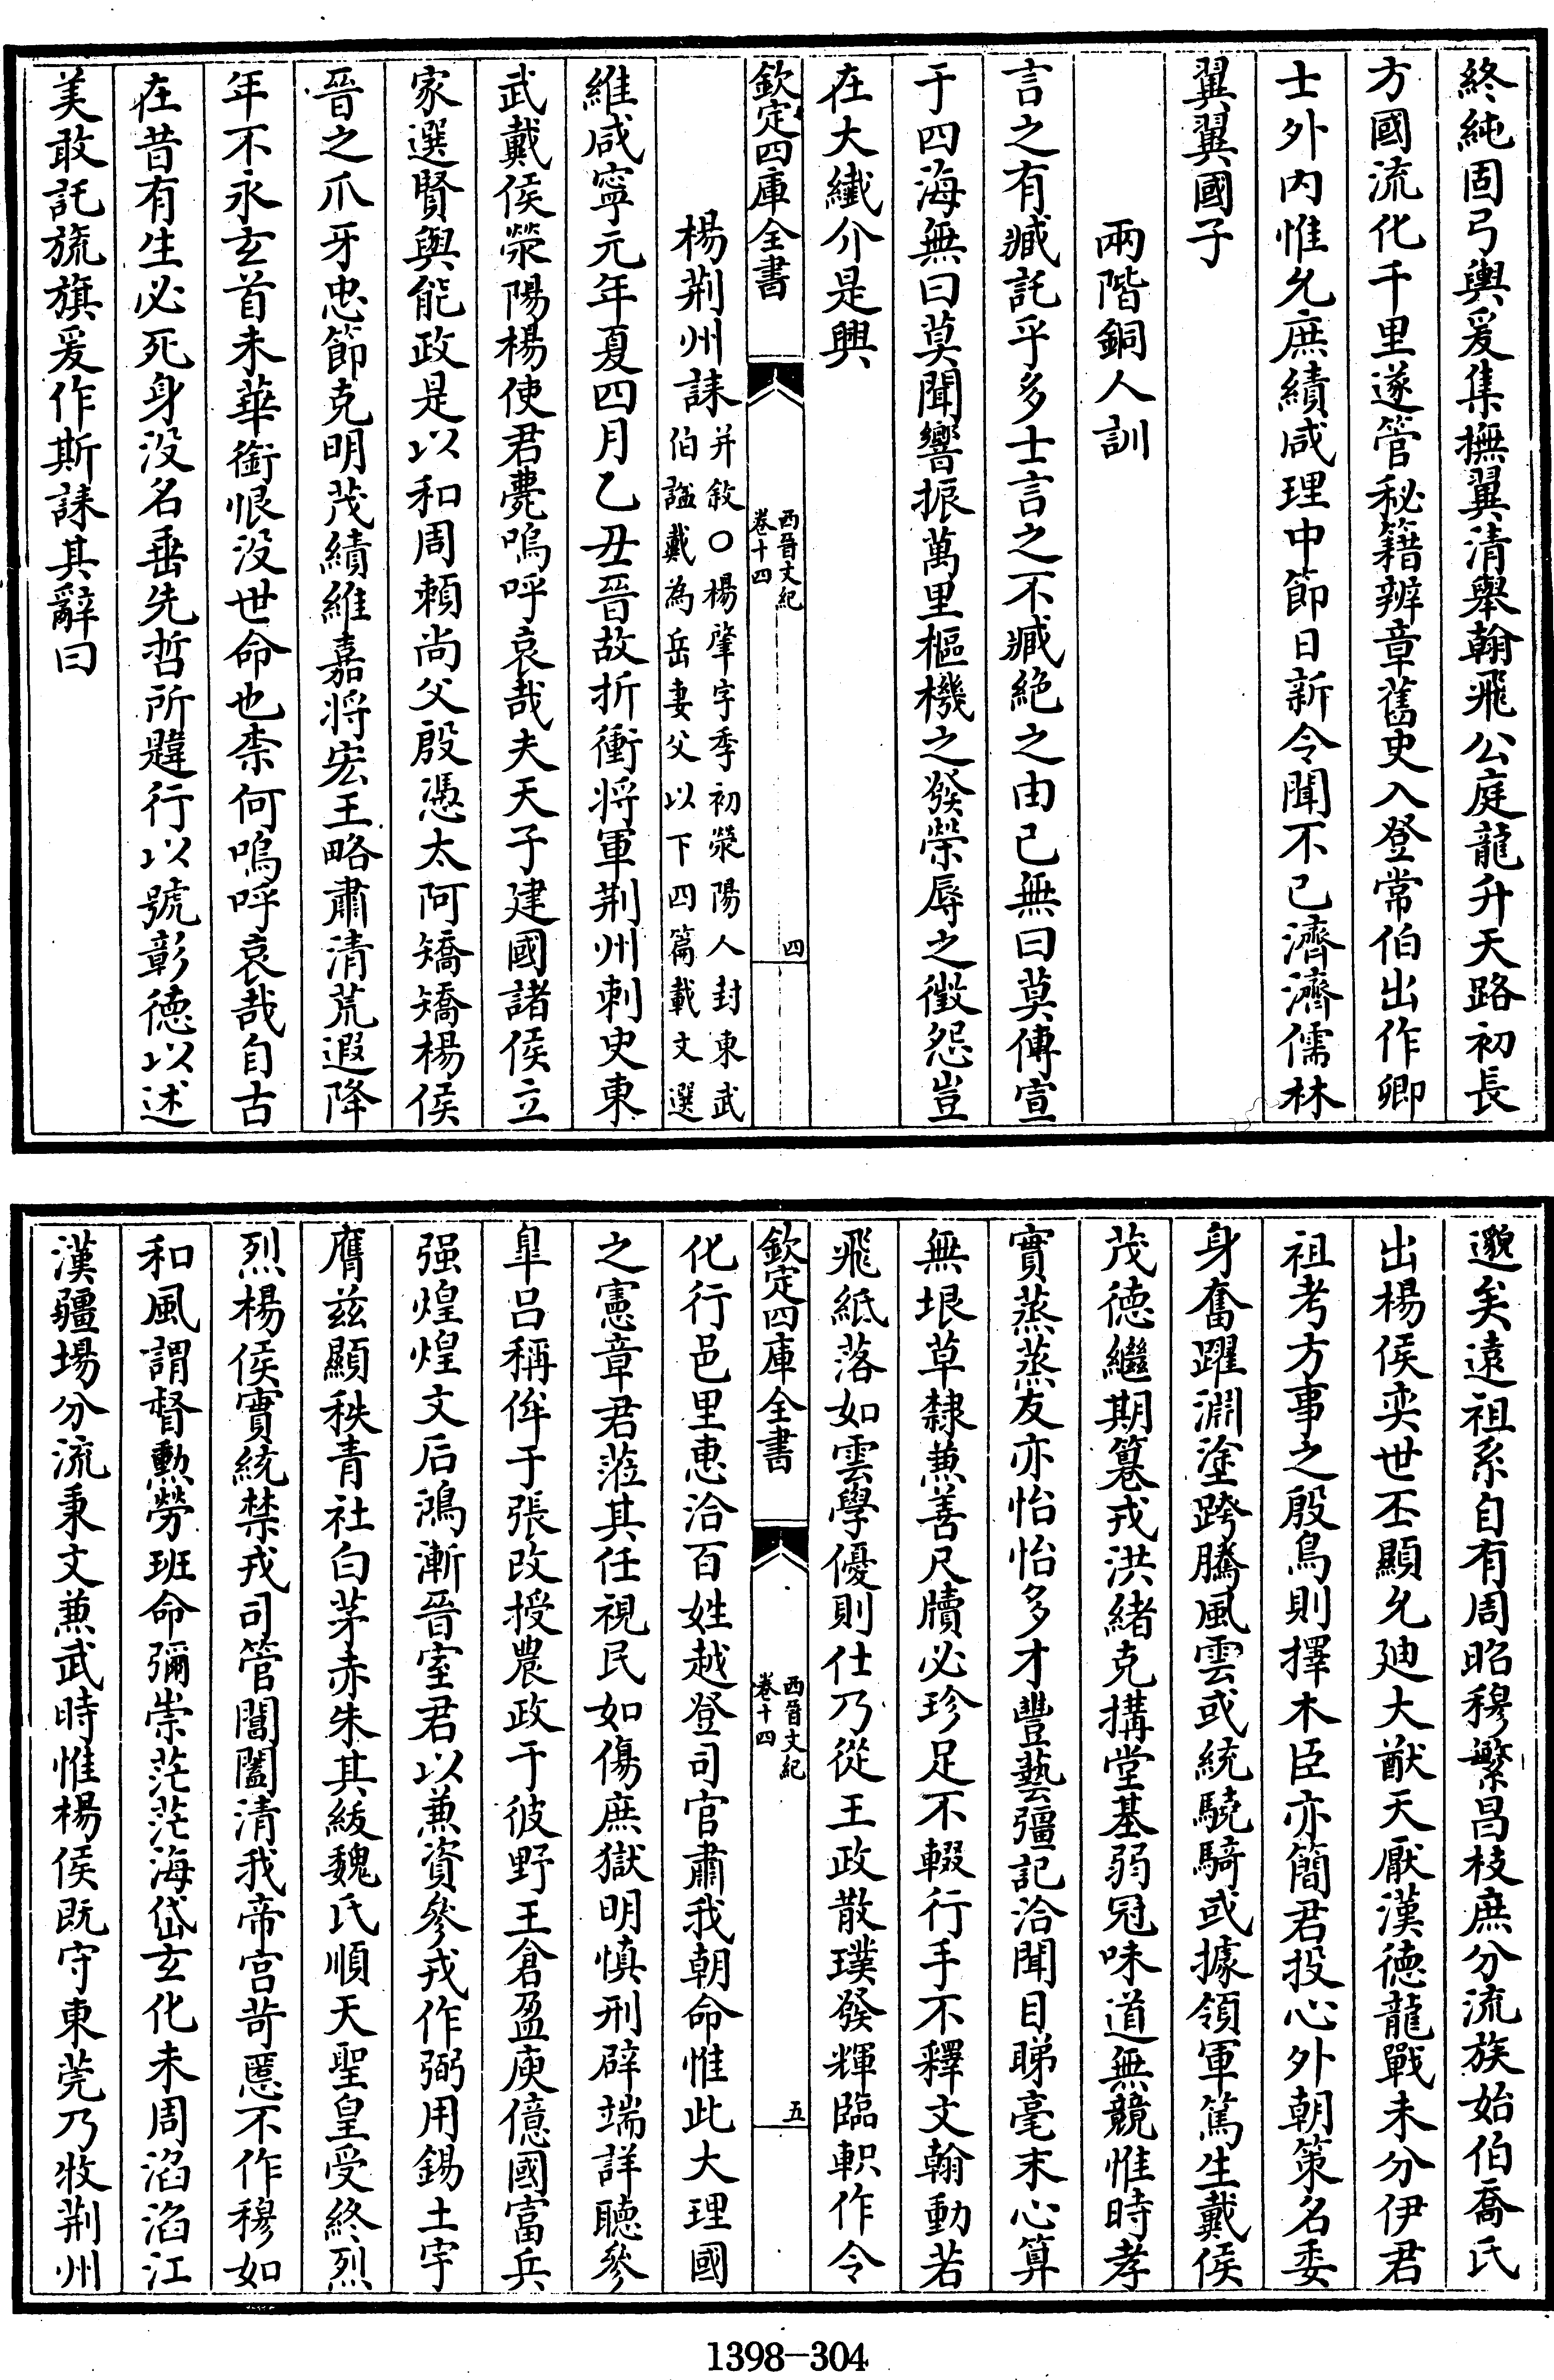 終純固弓輿爰集撫翼清舉翰飛公庭龍升天路初長
方國流化千里遂管秘籍辨章舊史入登常伯出作卿
士外内惟允庶績咸理中節日新令聞不已濟濟儒林
翼翼國子
兩階銅人訓
言之有臧託乎多士言之不臧絶之由己無曰莫傳宣
于四海無曰莫聞響振萬里樞機之發榮辱之徵怨豈
在大纎介是興
欽定四庫全書
西晉文紀
卷十四
四
楊荆州誄
并敘○楊肇字季初滎陽人封東武
伯諡戴為岳妻父以下四篇載文選
維咸寧元年夏四月乙丑晉故折衝将軍荆州刺史東
武戴侯滎陽楊使君薨嗚呼哀哉夫天子建國諸侯立
家選賢與能政是以和周賴尚父殷憑太阿矯矯楊侯
晉之爪牙忠節克明茂績維嘉将宏王略肅清荒遐降
年不永玄首未華銜恨没世命也柰何嗚呼哀哉自古
在昔有生必死身没名垂先哲所韙行以號彰德以述
美敢託旒旗爰作斯誄其辭曰
邈矣遠祖系自有周昭穆繁昌枝庶分流族始伯喬氏
出楊侯奕世丕顯允廸大猷天厭漢德龍戰未分伊君
祖考方事之殷鳥則擇木臣亦簡君投心外朝策名委
身奮躍淵塗跨騰風雲或統驍騎或據領軍篤生戴侯
茂德繼期篡戎洪緒克搆堂基弱冠味道無競惟時孝
實蒸蒸友亦怡怡多才豐藝彊記洽聞目睇毫末心算
無垠草隸兼善尺牘必珍足不輟行手不釋文翰動若
飛紙落如雲學優則仕乃從王政散璞發輝臨軹作令
欽定四庫全書
西晉文紀
卷十四
五
化行邑里惠洽百姓越登司官肅我朝命惟此大理國
之憲章君蒞其任視民如傷庶獄明慎刑辟端詳聽參
臯吕稱侔于張改授農政于彼野王倉盈庾億國富兵
强煌煌文后鴻漸晉室君以兼資參戎作弼用錫土宇
膺兹顯秩青社白茅赤朱其紱魏氏順天聖皇受終烈
烈楊侯實統禁戎司管閶闔清我帝宫苛慝不作穆如
和風謂督勲勞班命彌崇茫茫海岱玄化未周滔滔江
漢疆場分流秉文兼武時惟楊侯既守東莞乃牧荆州
1398-304